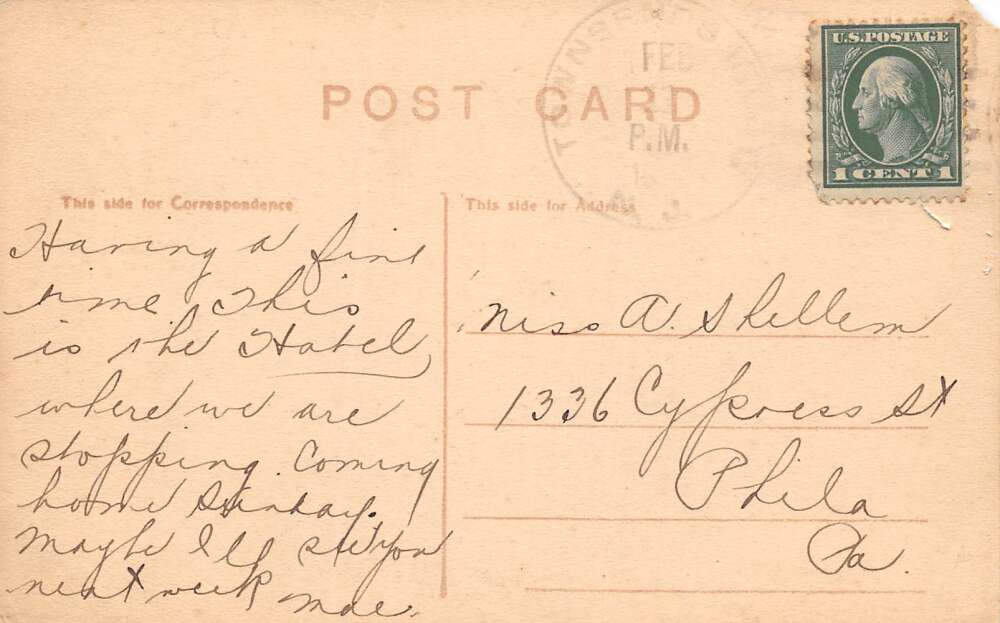 POST CARD
FEB
P.M.
N.J.
U.S. POSTAGE
1 CENT 1
This side for Correspondence
This side for Address
Having a fine
time. This
is the Hotel
where we are
stopping. Coming
home Sunday.
Maybe I'll see you
next week Mae.
Miss A. Shellem
1336 Cypress St
Phila
Pa.